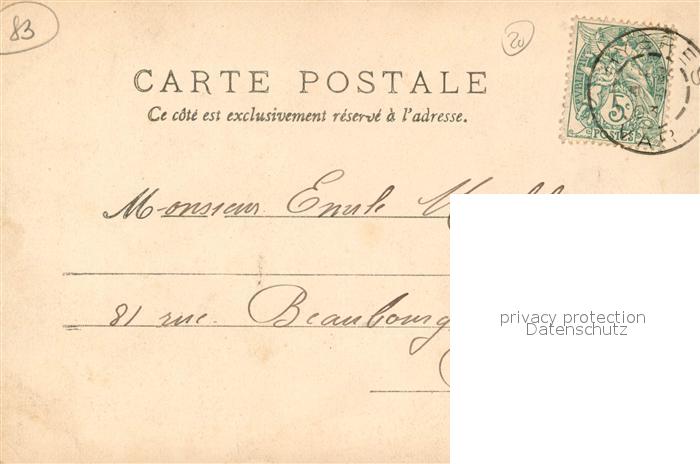 83
20
CARTE POSTALE
Ce côté est exclusivement réservé à l'adresse.
5c
POSTES
VAR
Monsieur Emile
81 rue Beaubourg
privacy protection
Datenschutz